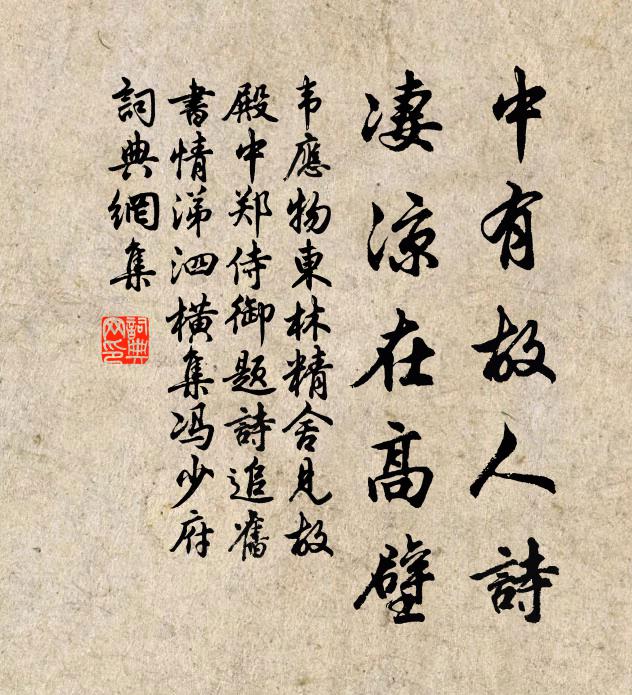 中有故人詩
凄涼在高壁
韦應物東林精舍見故
殿中郑侍御題詩追舊
書情涕泗橫集冯少府
詞典網集
詞典
网印